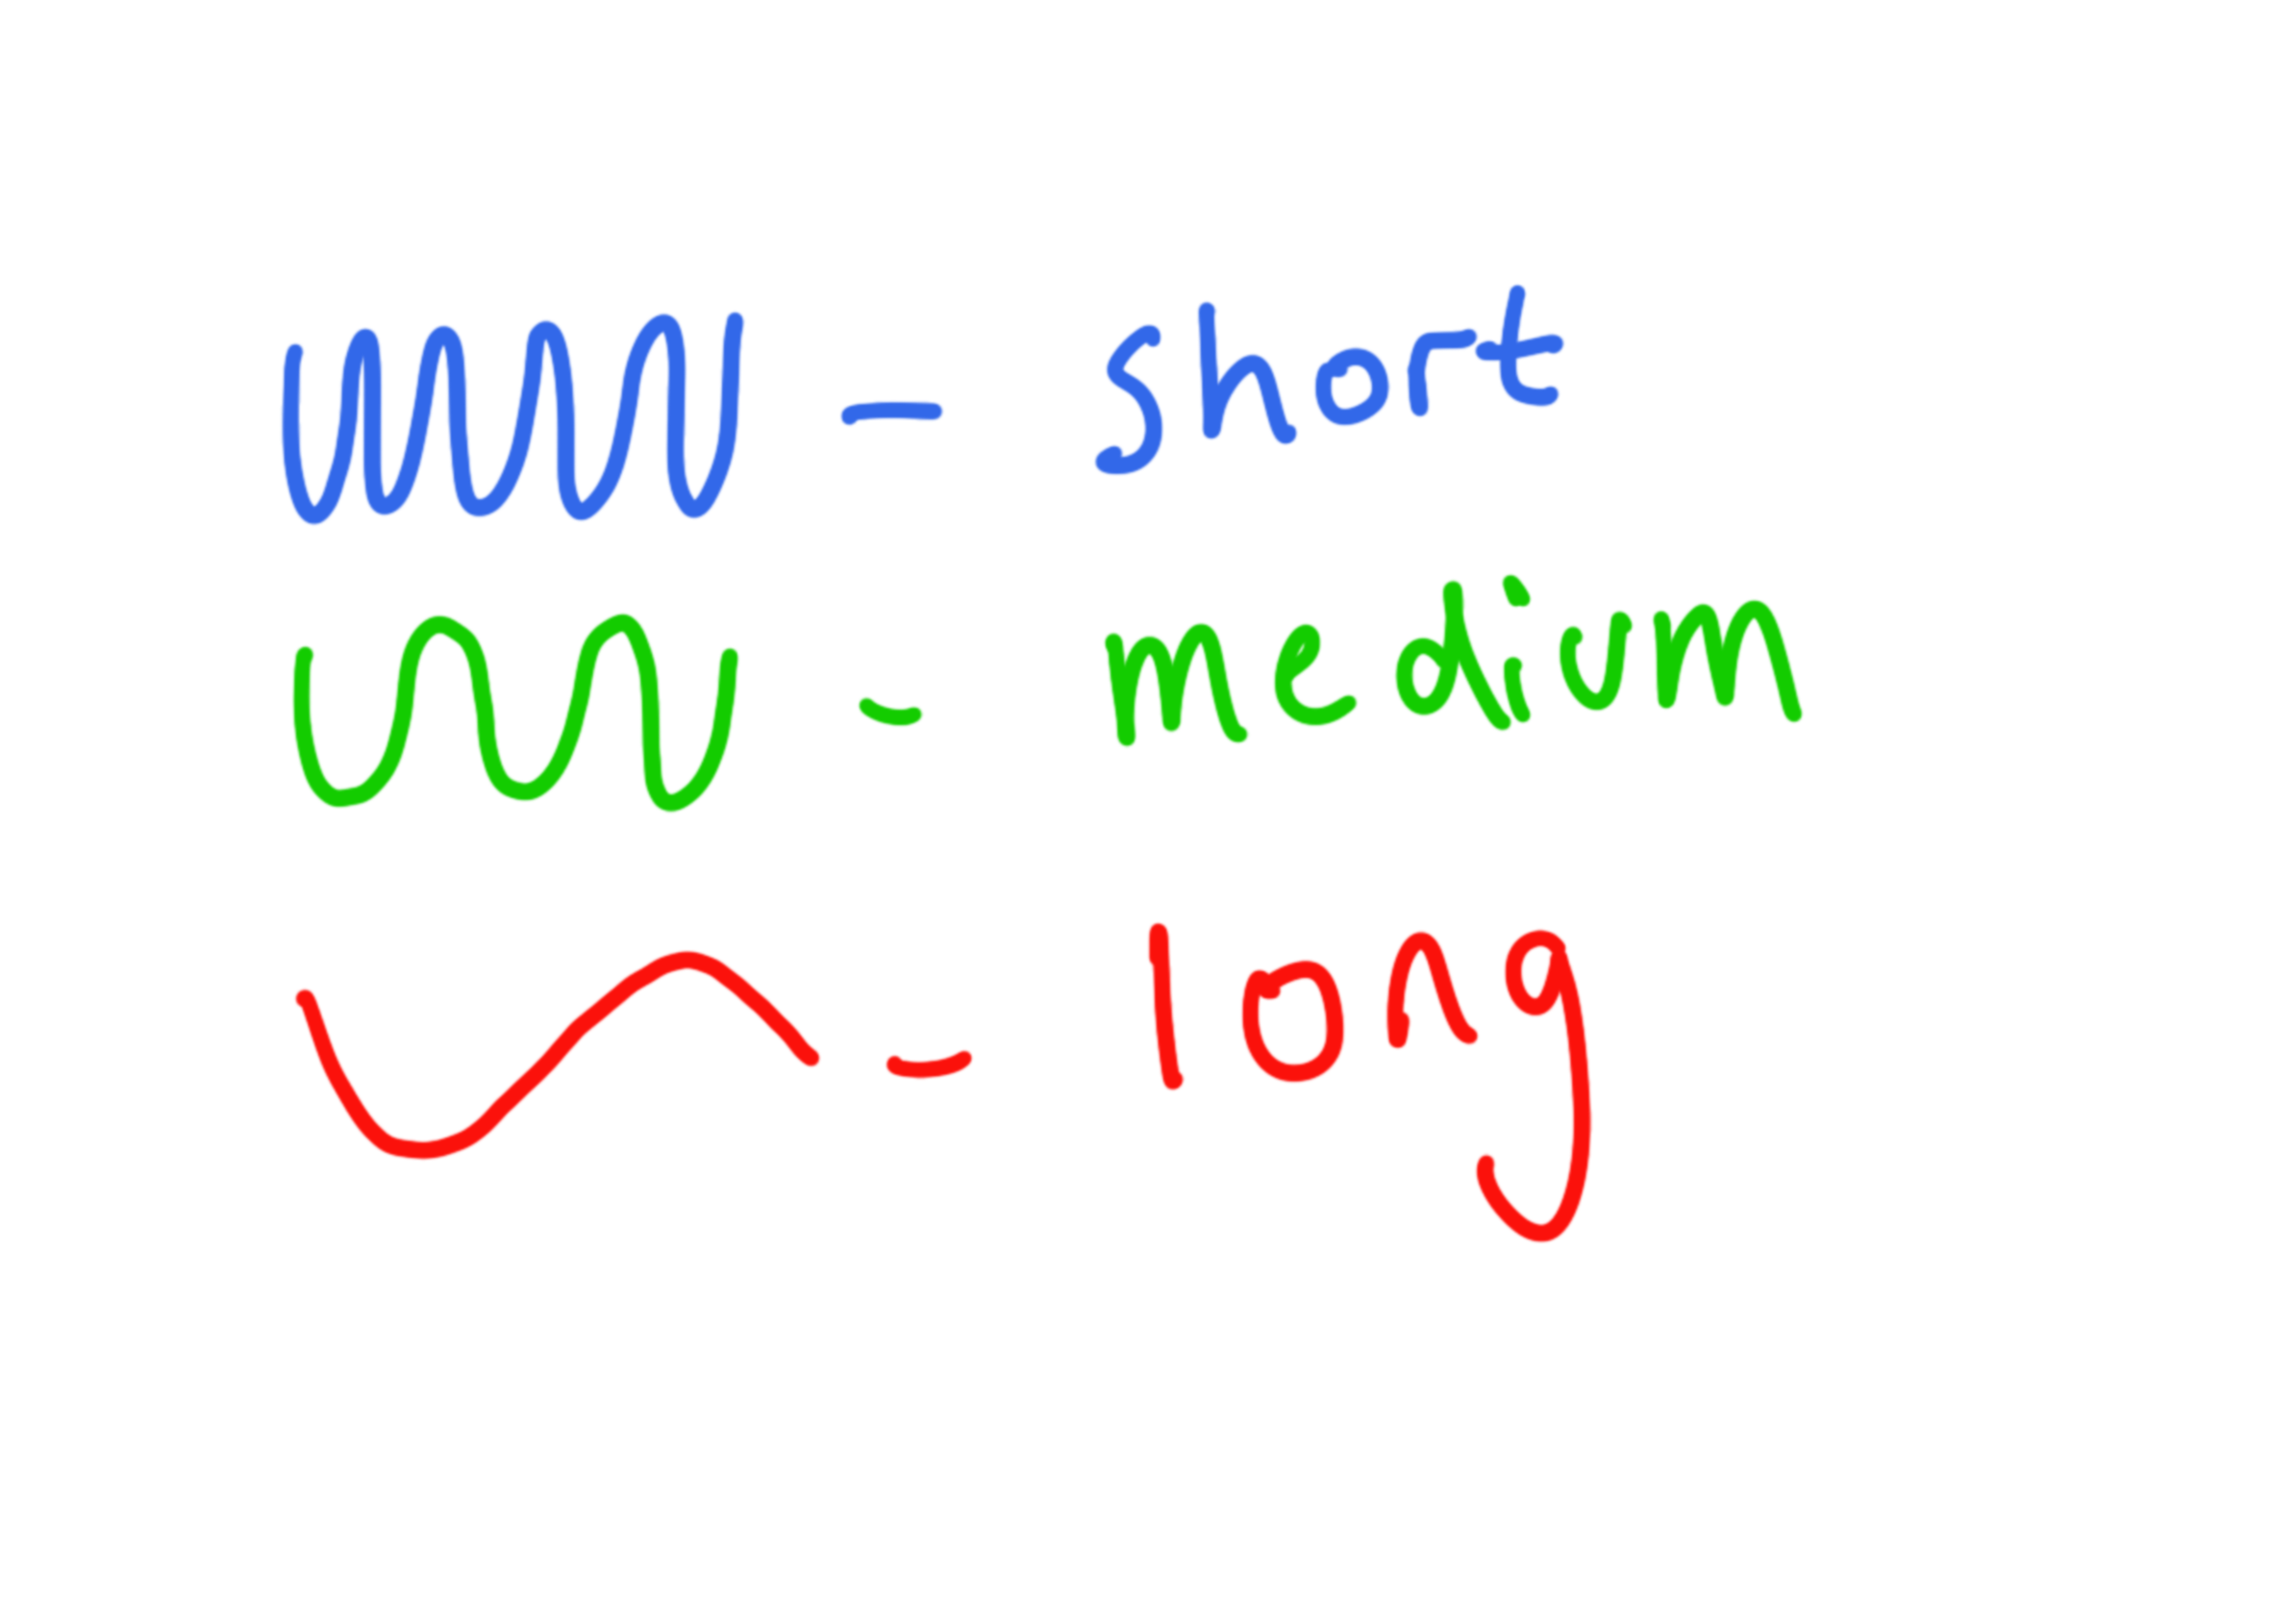 - short
- medium
- long